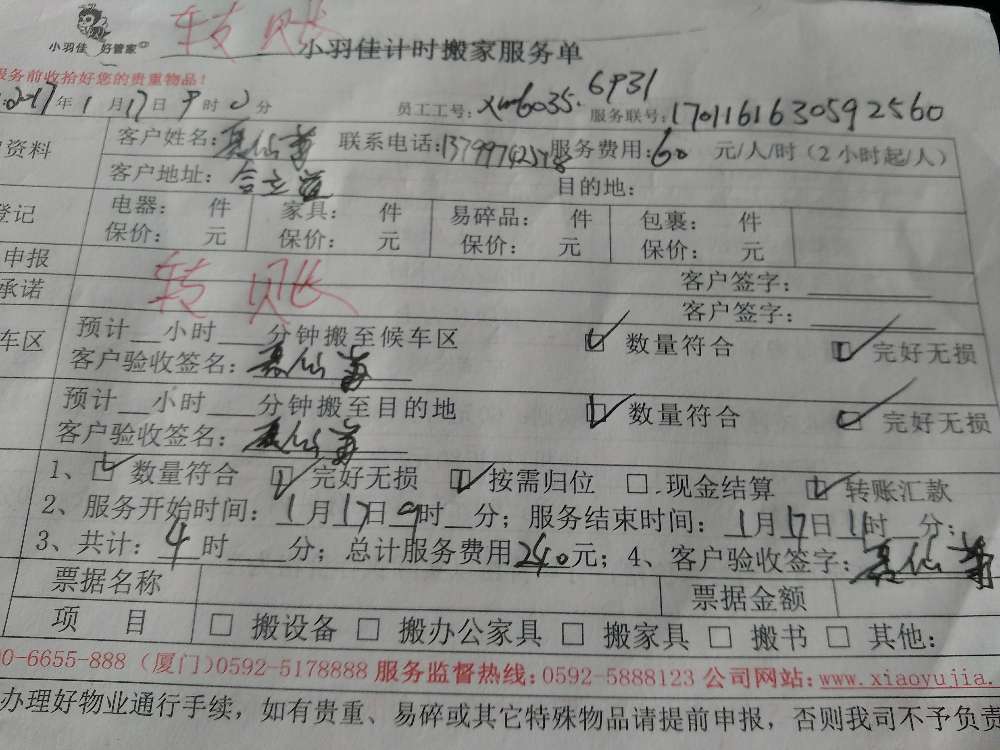 小羽佳 好管家
转账
小羽佳计时搬家服务单
服务前收拾好您的贵重物品!
2017年1月17日9时0分 员工工号: xm6035. 6931 服务联号: 1701161630592560
资料 客户姓名: 联系电话: 服务费用: 60 元/人/时(2小时起/人)
客户地址: 目的地:
登记 电器: 件 家具: 件 易碎品: 件 包裹: 件
保价: 元 保价: 元 保价: 元 保价: 元
申报 客户签字:
承诺 转账 客户签字:
车区 预计__小时___分钟搬至候车区 ☑ 数量符合 ☑ 完好无损
客户验收签名:
预计__小时___分钟搬至目的地 ☑ 数量符合 ☑ 完好无损
客户验收签名:
1、☑ 数量符合 ☑ 完好无损 ☑ 按需归位 □ 现金结算 ☑ 转账汇款
2、服务开始时间: 1月17日9时__分; 服务结束时间: 1月17日11时__分;
3、共计: 4时____分; 总计服务费用240元; 4、客户验收签字:
票据名称 票据金额
项 目 □ 搬设备 □ 搬办公家具 □ 搬家具 □ 搬书 □ 其他:
0-6655-888 (厦门)0592-5178888 服务监督热线: 0592-5888123 公司网站: www.xiaoyujia.
办理好物业通行手续, 如有贵重、易碎或其它特殊物品请提前申报, 否则我司不予负责